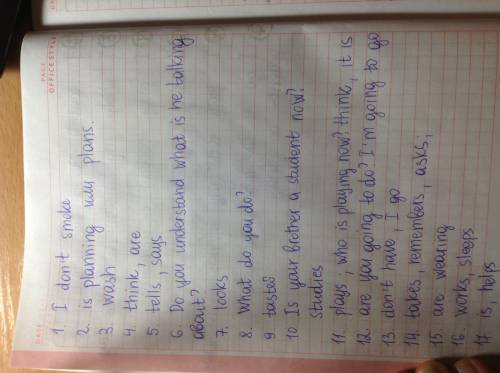 PAGE
OFFICESTYLE
DATE
1. I don't smoke
2. is planning my plans.
3. wash
4. think, are
5. tells, says
6. Do you understand what is he talking
about?
7. looks
8. What do you do?
9 tastes
10 Is your brother a student now?
Studies
11. plays, who is playing now? think, it is
12. are you going to do? I'm going to go
13. don't have, I go
14. takes, remembers, asks;
15. are wearing
16. works, sleeps
17. is, helps